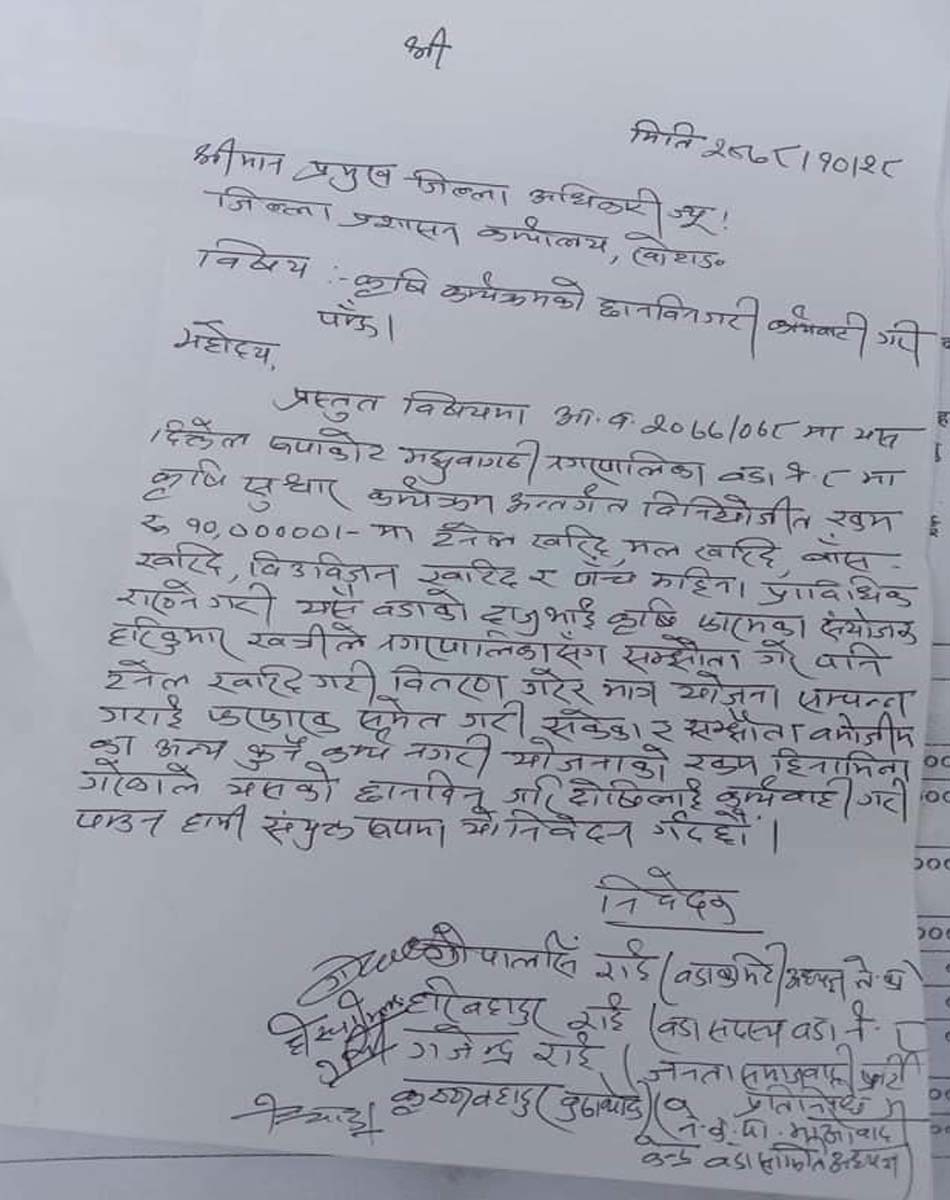 श्री
मिति २०७८।१०।२८
श्रीमान प्रमुख जिल्ला अधिकारी ज्यू!
जिल्ला प्रशासन कार्यालय, खोटाङ
विषय :- कृषि कार्यक्रमको छानविन गरी कार्यवाही गरी
पाँऊ।
महोदय,
प्रस्तुत विषयमा आ.व. २०७७/०७८ मा यस
दिक्तेल रुपाकोट मझुवागढी नगरपालिका वडा नं. ८ मा
कृषि सुधार कार्यक्रम अन्तर्गत विनियोजीत रकम
रु १०,०००००।- मा टनेल खरिद, मल खरिद, बाँस
खरिद, विउविजन खरिद र पाँच महिना प्राविधिक
राख्ने गरी यसै वडाको दाजुभाई कृषि फारमका संयोजक
हरिकुमार खत्रीले नगरपालिकासँग सम्झौता गरे पनि
टनेल खरिद गरी वितरण गरेर मात्र योजना सम्पन्न
गराई फरफारक समेत गरी सकेका र सम्झौता वमोजीम
का अन्य कुनै कार्य नगरी योजनाको रकम हिनामिना
गरेकाले यसको छानविन गरि दोषिलाई कार्यवाही गरी
पाउन हामी संयुक्त रुपमा यो निवेदन गर्दछौं।
निवेदक
गोपालसिं राई (वडा कमिटि अध्यक्ष ने.का
हरिबहादुर राई (वडा सदस्य वडा नं.
गजेन्द्र राई (जनता समाजवादी पार्टी
प्रतिनिधि
कृष्णबहादुर बुढाथोकी (
ने.क.पा. माओवादी
वडा समिति अध्यक्ष